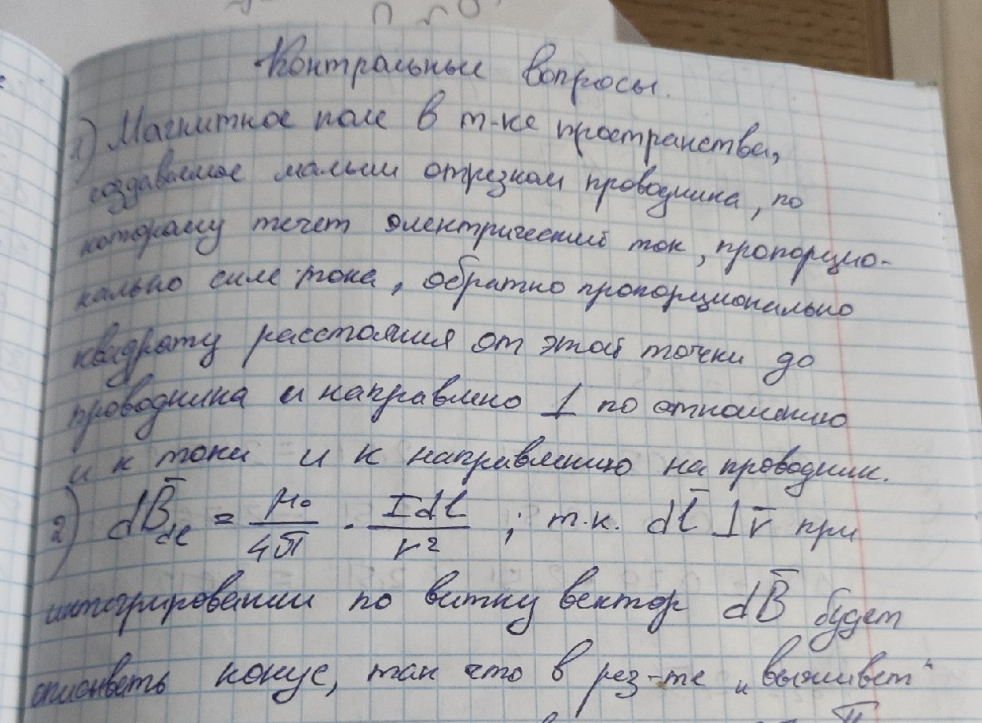 Контрольные вопросы.
1) Магнитное поле в т-ке пространства,
создаваемое малым отрезком проводника, по
которому течет электрический ток, пропорцио-
нально силе тока, обратно пропорционально
квадрату расстояния от этой точки до
проводника и направлено ⊥ по отношению
и к току и к направлению на проводник.
2) dB̄de = μ₀/4π · Idl/r² ; т.к. dl̄ ⊥ r̄ при
интегрировании по витку вектор dB̄ будет
описывать конус, так что в рез-те „выживет“